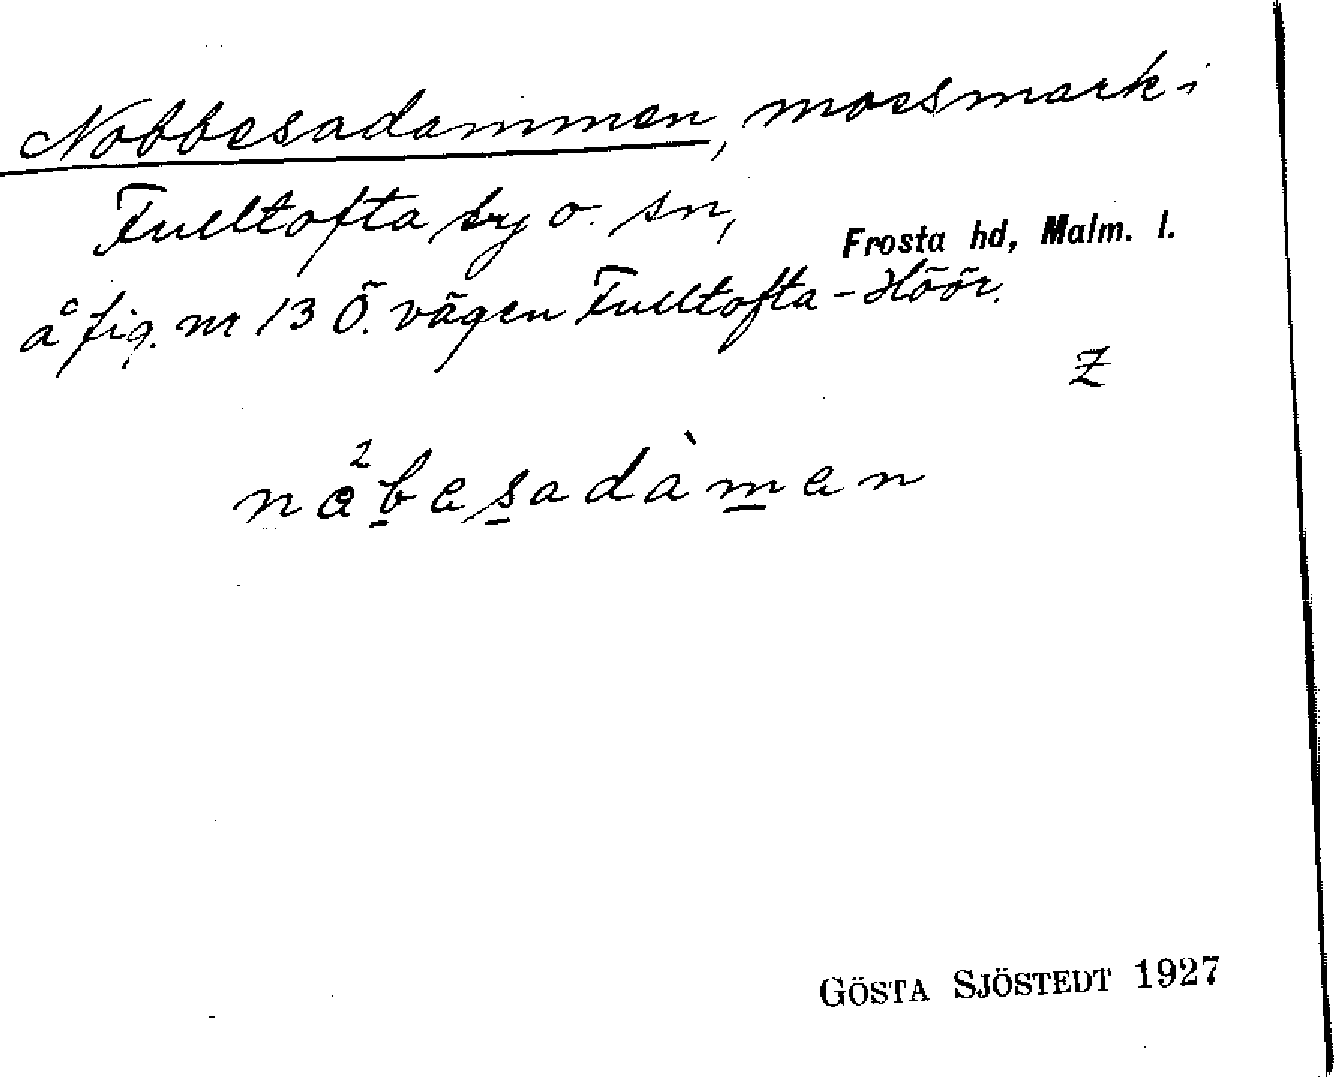 Nobbesadammen, mossmark i
Fulltofta by o. sn,
Frosta hd, Malm. l.
å fig. nr 13 Ö. vägen Fulltofta - Höör.
Z
GÖSTA SJÖSTEDT 1927